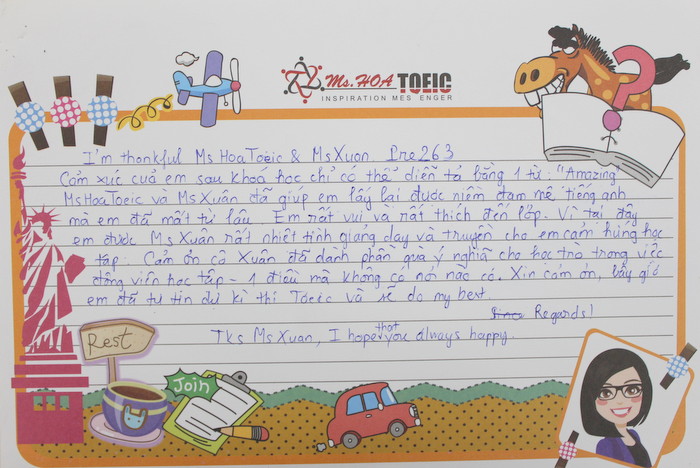 Ms. HOA TOEIC
INSPIRATION MES ENGER
I'm thankful Ms Hoa Toeic & Ms Xuan Pre 263
Cảm xúc của em sau khoá học chỉ có thể diễn tả bằng 1 từ: "Amazing"
Ms Hoa Toeic và Ms Xuân đã giúp em lấy lại được niềm đam mê tiếng anh
mà em đã mất từ lâu. Em rất vui và rất thích đến lớp. Vì tại đây
em được Ms Xuân rất nhiệt tình giảng dạy và truyền cho em cảm hứng học
tập. Cảm ơn cô Xuân đã dành phần quà ý nghĩa cho học trò trong việc
động viên học tập - 1 điều mà không có nơi nào có. Xin cảm ơn, bây giờ
em đã tự tin dự kì thi Toeic và sẽ do my best.
Regards!
Tks Ms Xuan, I hope that you always happy.
Rest
Join